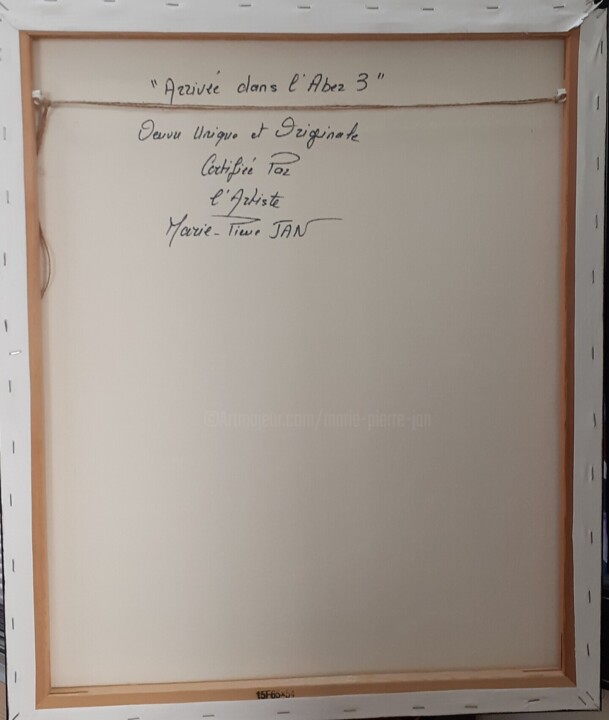 "Arrivée dans l'Aber 3"
Oeuvre Unique et Originale
Certifiée Par
l'Artiste
Marie-Pierre JAN
artmajeur.com/marie-pierre-jan
15F65x54